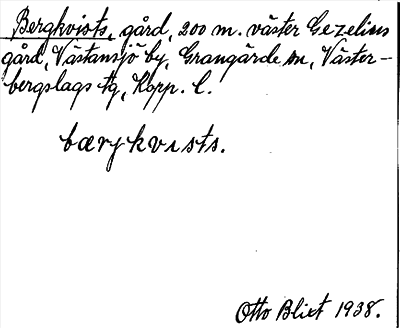 Bergkvists, gård, 200 m. väster Gezelius
gård, Västansjö by, Grangärde sn, Väster-
bergslags tg, Kopp. l.
bærjkvists.
Otto Blixt 1938.